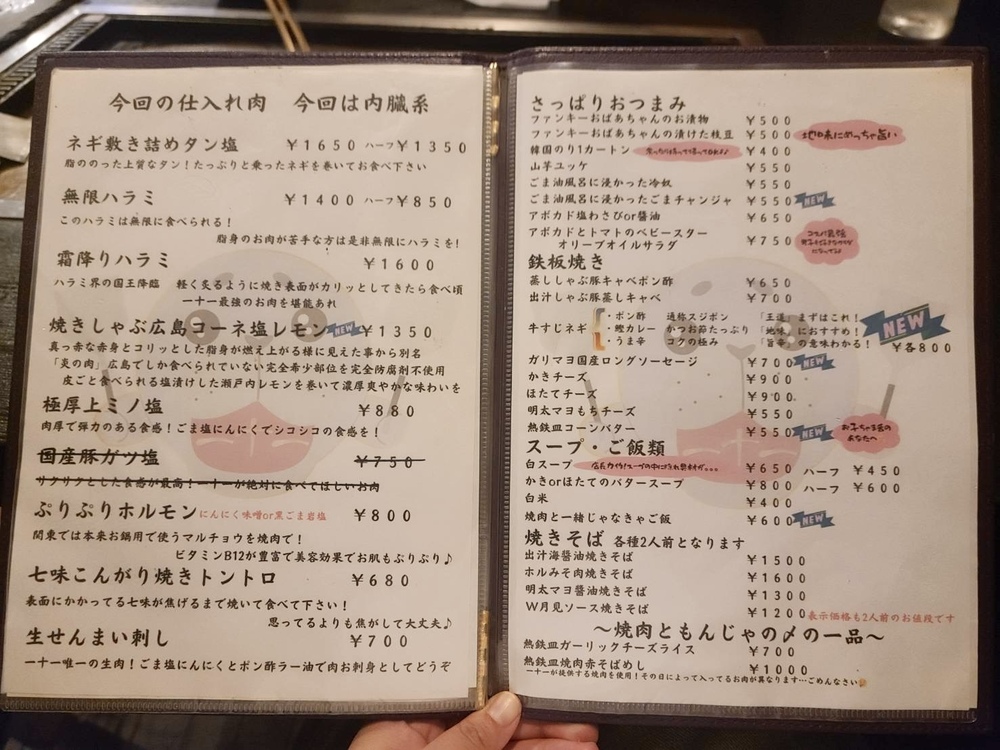 今回の仕入れ肉 今回は内臓系
ネギ敷き詰めタン塩 ¥1650 ハーフ¥1350
脂ののった上質なタン！たっぷりと乗ったネギを巻いてお食べ下さい
無限ハラミ ¥1400 ハーフ¥850
このハラミは無限に食べられる！
脂身のお肉が苦手な方は是非無限にハラミを！
霜降りハラミ ¥1600
ハラミ界の国王降臨 軽く炙るように焼き表面がカリッとしてきたら食べ頃
一ナー最強のお肉を堪能あれ
焼きしゃぶ広島コーネ塩レモン NEW ¥1350
真っ赤な赤身とコリッとした脂身が燃え上がる様に見えた事から別名
「炎の肉」広島でしか食べられていない完全希少部位を完全防腐剤不使用
皮ごと食べられる塩漬けした瀬戸内レモンを巻いて濃厚爽やかな味わいを
極厚上ミノ塩 ¥880
肉厚で弾力のある食感！ごま塩にんにくでシコシコの食感を！
国産豚ガツ塩 ¥750
サクリクとした食感が最高！一ナーが絶対に食べてほしいお肉
ぷりぷりホルモン にんにく味噌or黒ごま岩塩 ¥800
関東では本来お鍋用で使うマルチョウを焼肉で！
ビタミンB12が豊富で美容効果でお肌もぷりぷり♪
七味こんがり焼きトントロ ¥680
表面にかかってる七味が焦げるまで焼いて食べて下さい！
思ってるよりも焦がして大丈夫♪
生せんまい刺し ¥700
一ナー唯一の生肉！ごま塩にんにくとポン酢ラー油で肉お刺身としてどうぞ
さっぱりおつまみ
ファンキーおばあちゃんのお漬物 ¥500
ファンキーおばあちゃんの漬けた枝豆 ¥500 地味にめっちゃ旨い
韓国のり1カートン ¥400
山芋ユッケ ¥550
ごま油風呂に浸かった冷奴 ¥550
ごま油風呂に浸かったごまチャンジャ ¥550 NEW
アボカド塩わさびor醤油 ¥650
アボカドとトマトのベビースター
オリーブオイルサラダ ¥750
鉄板焼き
蒸ししゃぶ豚キャベポン酢 ¥650
出汁しゃぶ豚蒸しキャベ ¥700
牛すじネギ
・ポン酢 通称スジポン 「王道」まずはこれ！
・鰹カレー かつお節たっぷり 「地味」におすすめ！
・うま辛 コクの極み 「旨辛」の意味わかる！ NEW ¥各800
ガリマヨ国産ロングソーセージ ¥700 NEW
かきチーズ ¥900
ほたてチーズ ¥900
明太マヨもちチーズ ¥550
熱鉄皿コーンバター ¥550 NEW お子ちゃま舌のあなたへ
スープ・ご飯類
白スープ ¥650 ハーフ ¥450
かきorほたてのバタースープ ¥800 ハーフ ¥600
白米 ¥400
焼肉と一緒じゃなきゃご飯 ¥600 NEW
焼きそば 各種2人前となります
出汁海醤油焼きそば ¥1500
ホルみそ肉焼きそば ¥1600
明太マヨ醤油焼きそば ¥1300
W月見ソース焼きそば ¥1200 表示価格も2人前のお値段です
～焼肉ともんじゃの〆の一品～
熱鉄皿ガーリックチーズライス ¥700
熱鉄皿焼肉赤そばめし ¥1000
一ナーが提供する焼肉を使用！その日によって入ってるお肉が異なります…ごめんなさい